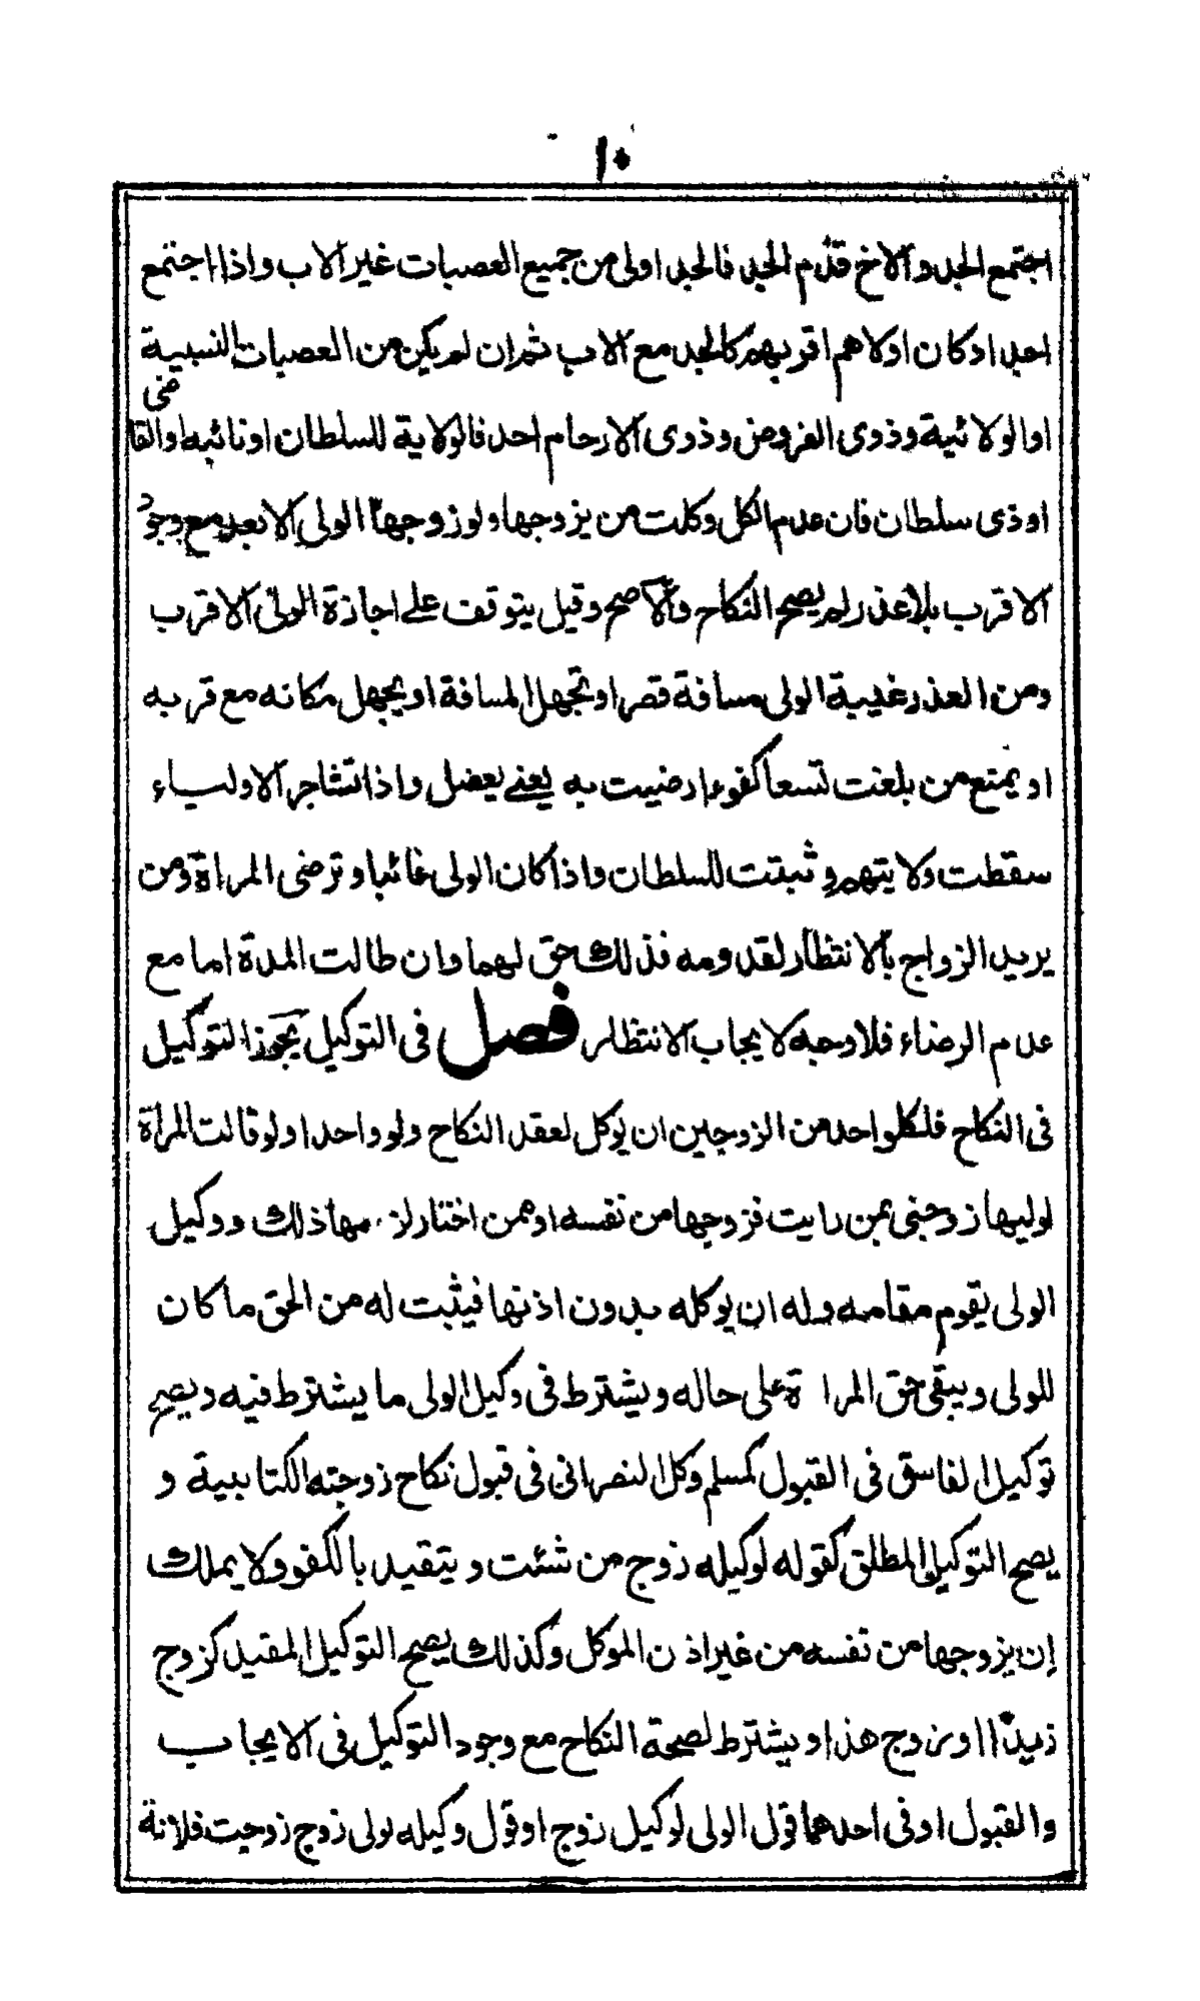 ١٠
اجتمع الجد والاخ قدم الجد فالجد اولى من جميع العصبات غير الاب واذا اجتمع
احداد كان اولاهم اقربهم كالجد مع الاب ثم ان لم يكن من العصبات النسبية
او الولائية وذوى الفروض وذوى الارحام احد فالولاية للسلطان او نائبه او القاضى
او ذى سلطان فان عدم الكل وكلت من يزوجها ولو زوجها الولى الابعد مع وجود
الاقرب بلا عذر لم يصح النكاح والاصح وقيل يتوقف على اجازة الولى الاقرب
ومن العذر غيبة الولى مسافة قصر او تجهل المسافة او يجهل مكانه مع قربه
او يمتنع من بلغت تسعا كفوءا رضيت به يعنى يعضل واذا تشاجر الاولياء
سقطت ولايتهم وثبتت للسلطان واذا كان الولى غائبا وترضى المراة ومن
يريد الزواج بالانتظار لقدومه فذلك حق لهما وان طالت المدة اما مع
عدم الرضاء فلا وجه لايجاب الانتظار فصل فى التوكيل يجوز التوكيل
فى النكاح فلكل واحد من الزوجين ان يوكل لعقد النكاح ولو واحدا ولو قالت المراة
لوليها زوجنى بمن رايت فزوجها من نفسه او ممن اختار لزمها ذلك ووكيل
الولى يقوم مقامه وله ان يوكله بدون اذنها فيثبت له من الحق ما كان
للولى ويبقى حق المراة على حاله ويشترط فى وكيل الولى ما يشترط فيه ويصح
توكيل الفاسق فى القبول كمسلم وكل النصرانى فى قبول نكاح زوجته الكتابية و
يصح التوكيل المطلق كقوله لوكيله زوج من شئت ويتقيد بالكفو ولا يملك
ان يزوجها من نفسه من غير اذن الموكل وكذلك يصح التوكيل المقيد كزوج
زيدا او نزوج هذا ويشترط لصحة النكاح مع وجود التوكيل فى الايجاب
والقبول او فى احدهما قول الولى لوكيل زوج او قول وكيله لولى زوج زوجت فلانة